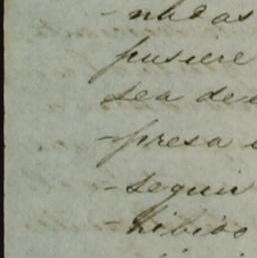 -nadas
pusiere
sea de
-presa
-seguir
-hibido